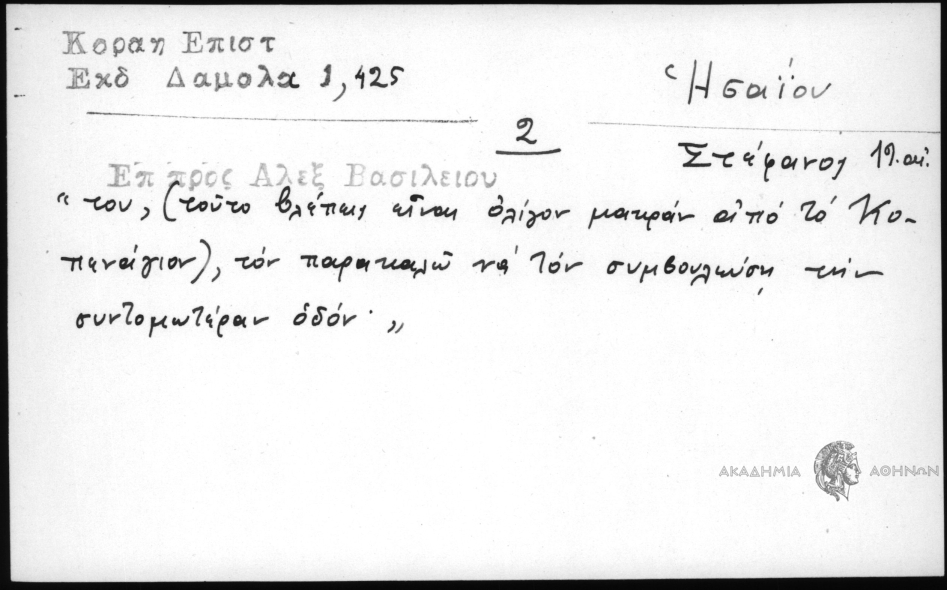 Κοραη Επιστ
Εκδ Δαμολα 1,425
Ἡσαΐου
2
Στέφανος 19. αἰ.
Επ προς Αλεξ Βασιλειου
“του, (τοῦτο βλέπεις εἶναι ὀλίγον μακράν ἀπό τό Κο-
πενάγιον), τόν παρακαλῶ νά τόν συμβουλεύσῃ τήν
συντομωτέραν ὁδόν· „
ΑΚΑΔΗΜΙΑ ΑΘΗΝΩΝ